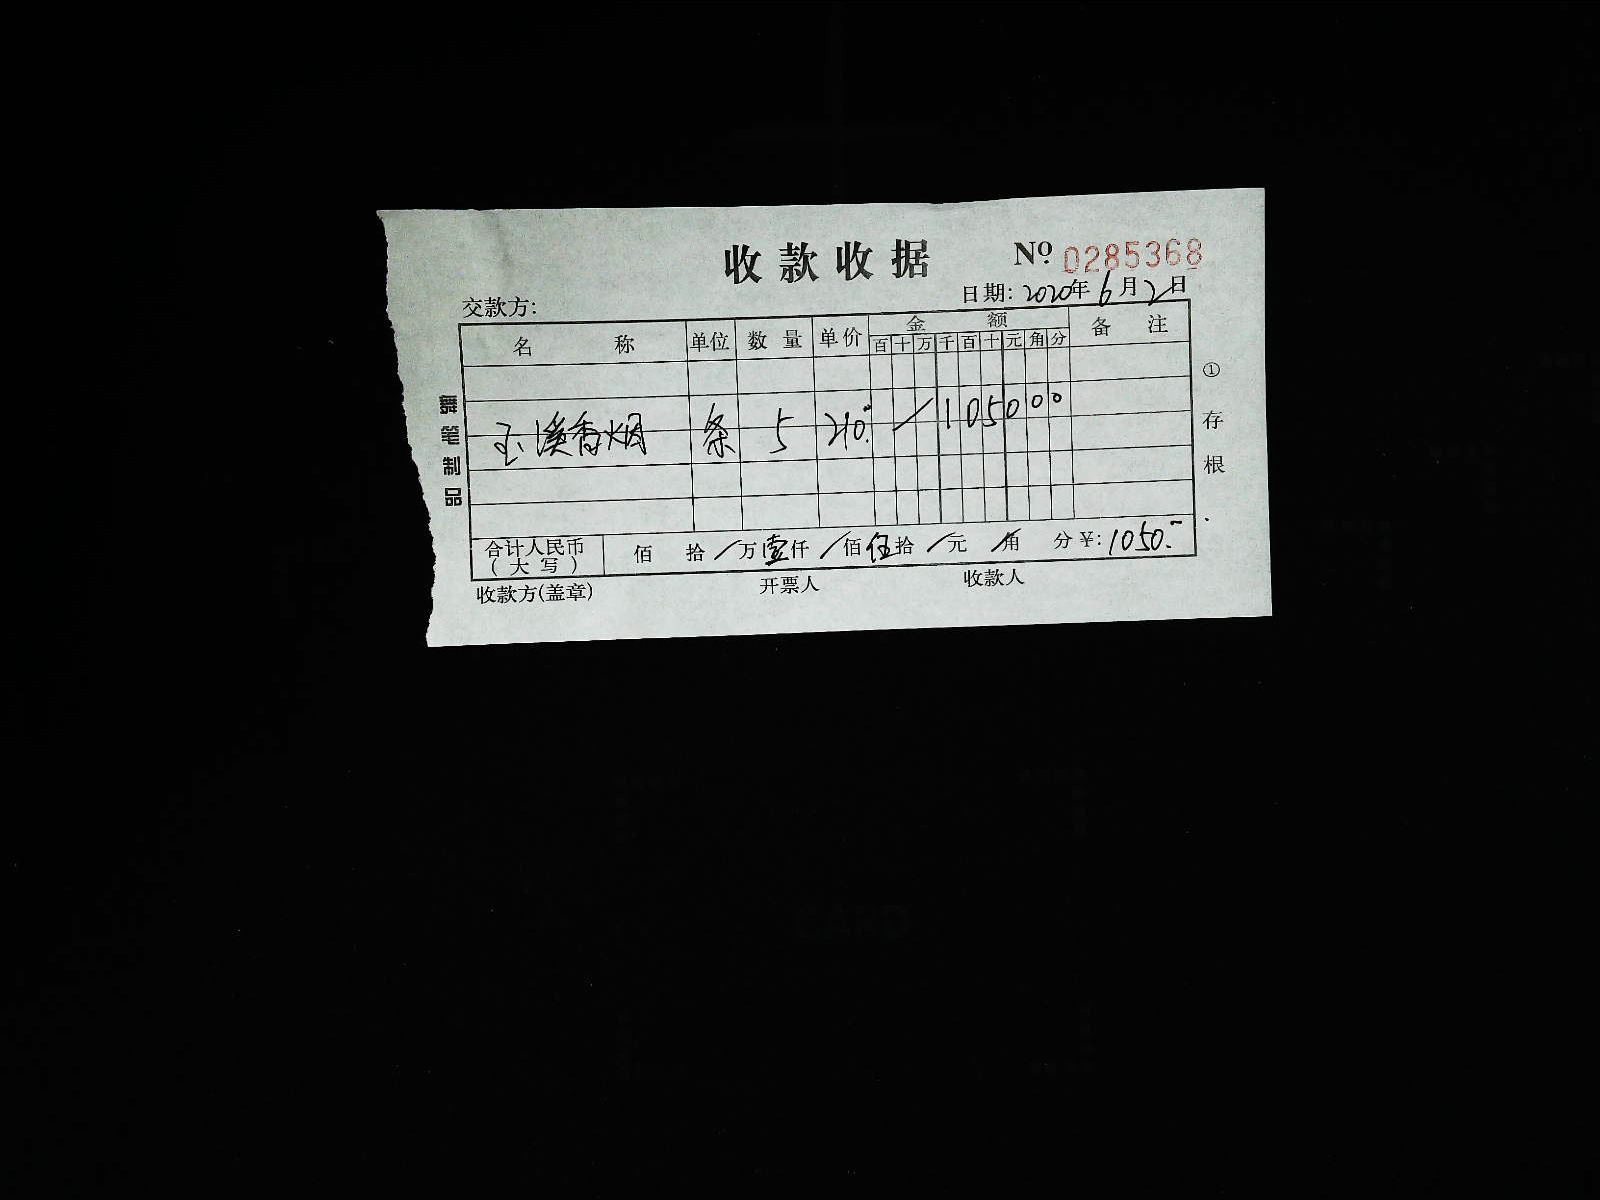 收款收据 Nº 0285368
交款方: 日期: 2020年6月2日
名 称 单位 数量 单价 金 额 备 注
百 十 万 千 百 十 元 角 分
玉溪香烟 条 5 210. / 1 0 5 0 0 0
合计人民币 佰 拾 / 万 壹仟 / 佰 伍拾 / 元 / 角 分 ¥: 1050.-
(大写)
收款方(盖章) 开票人 收款人
舞笔制品
①存根